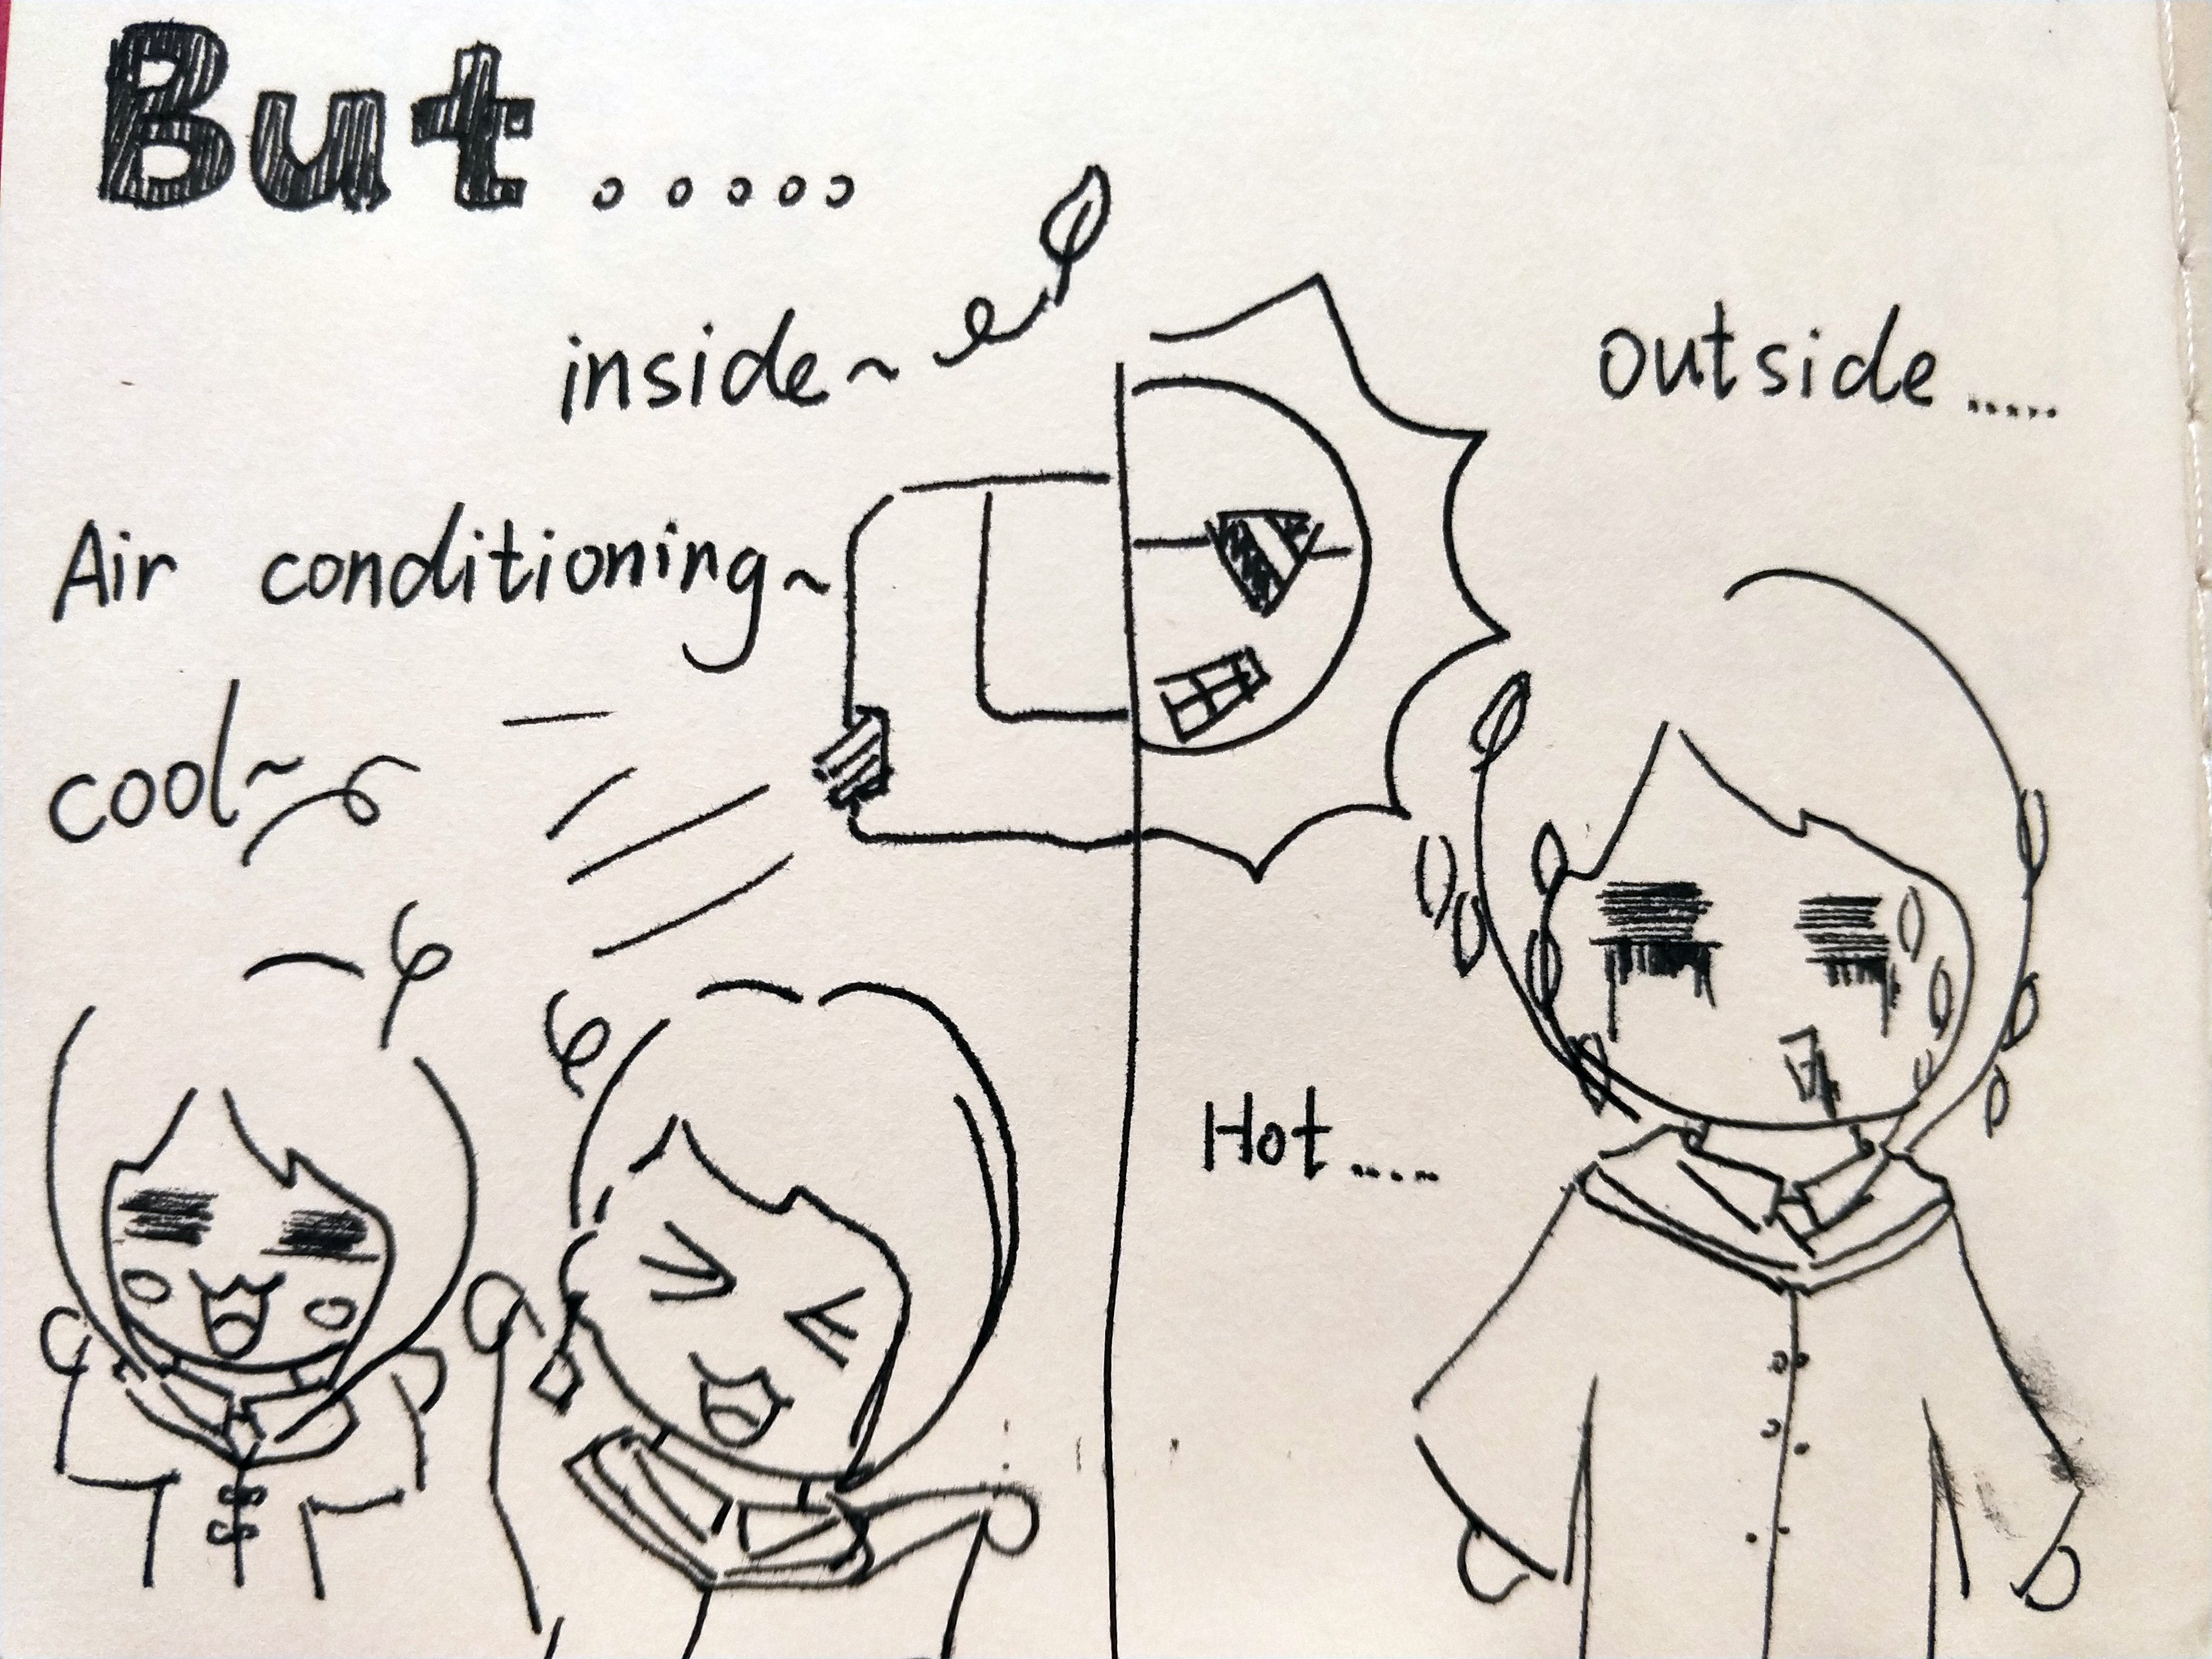 But.....
inside~
outside.....
Air conditioning~
cool~
Hot.....